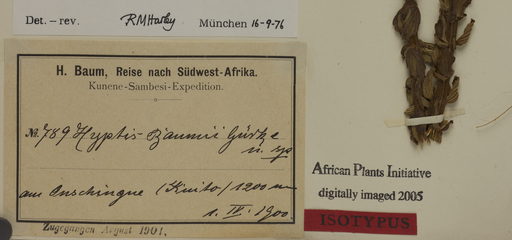 Det. – rev. RMHarley München 16-9-76
H. Baum, Reise nach Südwest-Afrika.
Kunene-Sambesi-Expedition.
No. 789 Hyptis Baumii Gürke
n. sp
am Cuschingue (Kuito) 1200 m
1. IV. 1900.
Zugegangen August 1901.
African Plants Initiative
digitally imaged 2005
ISOTYPUS